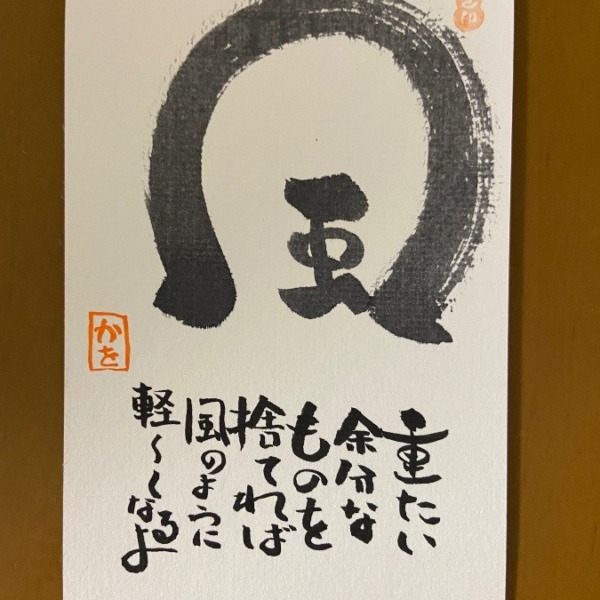 風
重たい
余分な
ものを
捨てれば
風のように
軽〜くなるよ
かを